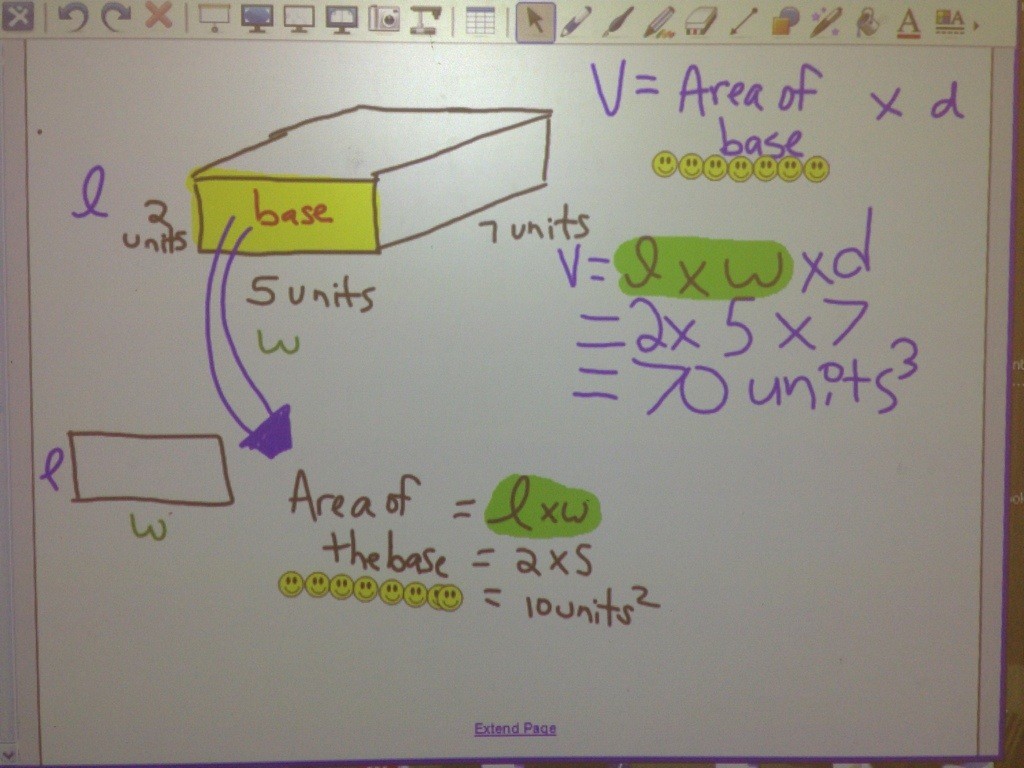 V = Area of base x d
l
2 units
base
7 units
5 units
w
V = l x w x d
= 2 x 5 x 7
= 70 units³
l
w
Area of the base = l x w
= 2 x 5
= 10 units²
Extend Page